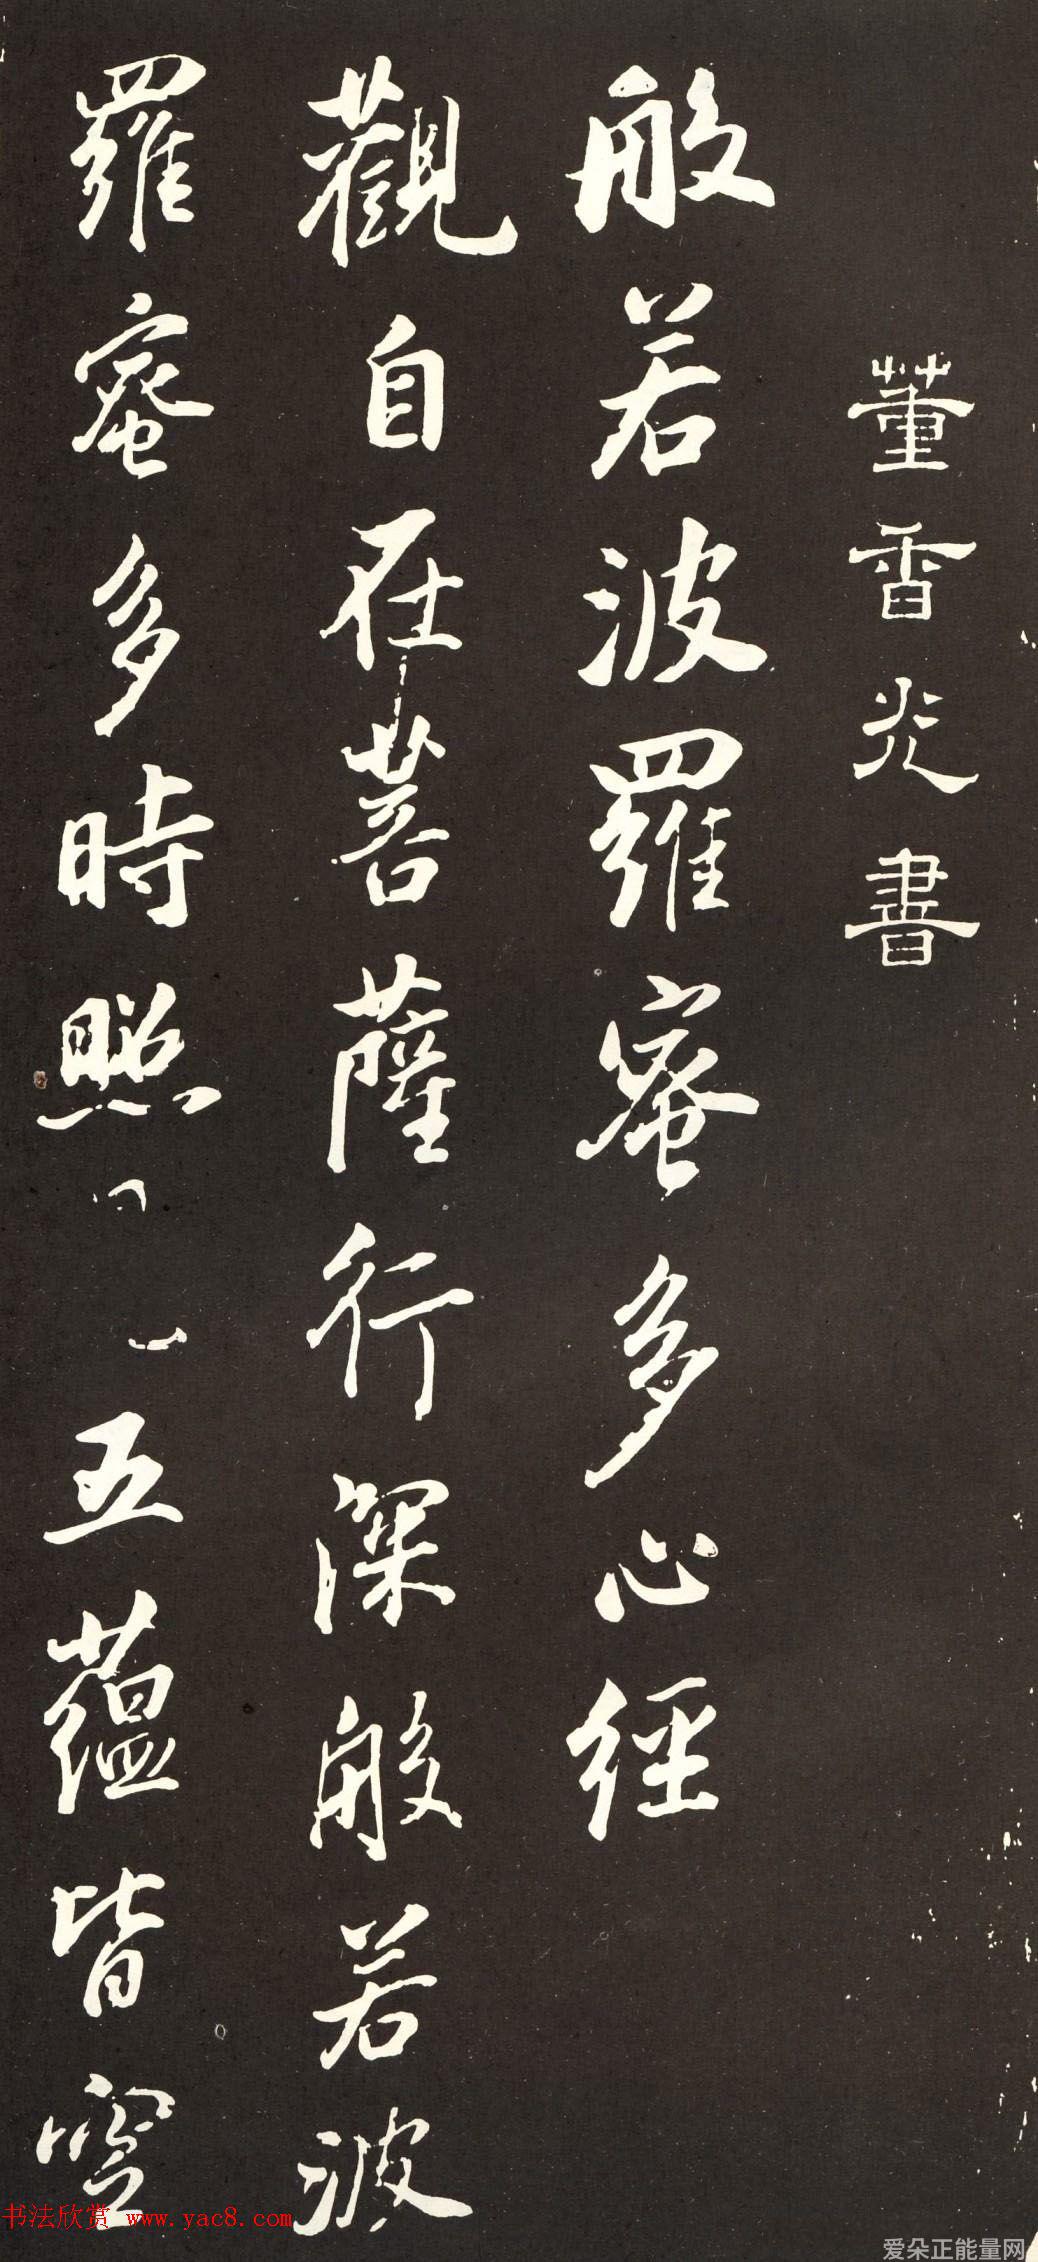 董香光書
般若波羅蜜多心經
觀自在菩薩行深般若波
羅蜜多時照五蘊皆空
书法欣赏 www.yac8.com
爱朵正能量网